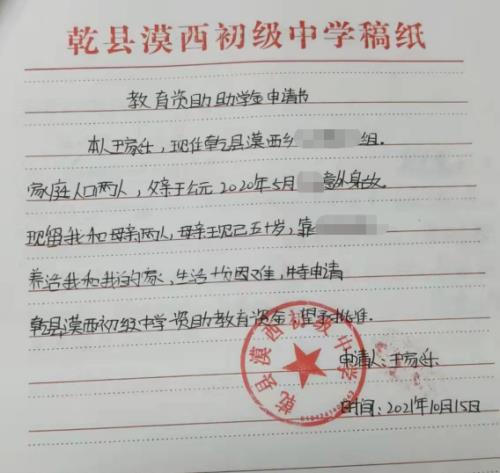 乾县漠西初级中学稿纸
教育资助助学金申请书
本人王家乐,现住乾县漠西乡 组.
家庭人口两人,父亲于公元2020年5月 意外身故.
现留我和母亲两人,母亲现已五十岁,靠
养活我和我的家,生活十分困难,特申请
乾县漠西初级中学资助教育资金,望予批准.
乾县漠西初级中学
申请人:王家乐
时间:2021年10月15日